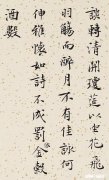 談轉清開瓊筵以坐花飛
羽觴而醉月不有佳詠何
伸雅懷如詩不成罰金穀
酒數